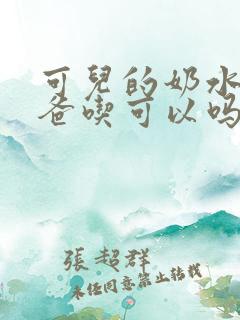 可兒的奶水
爸喫可以吗
張超群
未经同意禁止转载